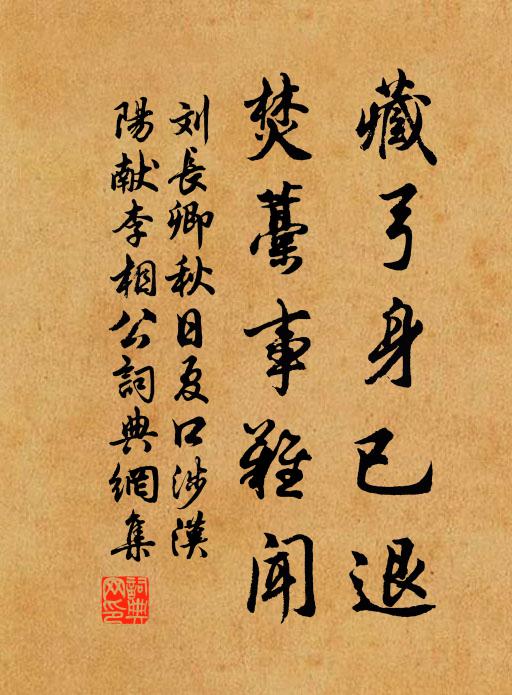 藏弓身已退
焚藁事難聞
刘長卿秋日夏口涉漢
陽献李相公詞典網集
詞典網印